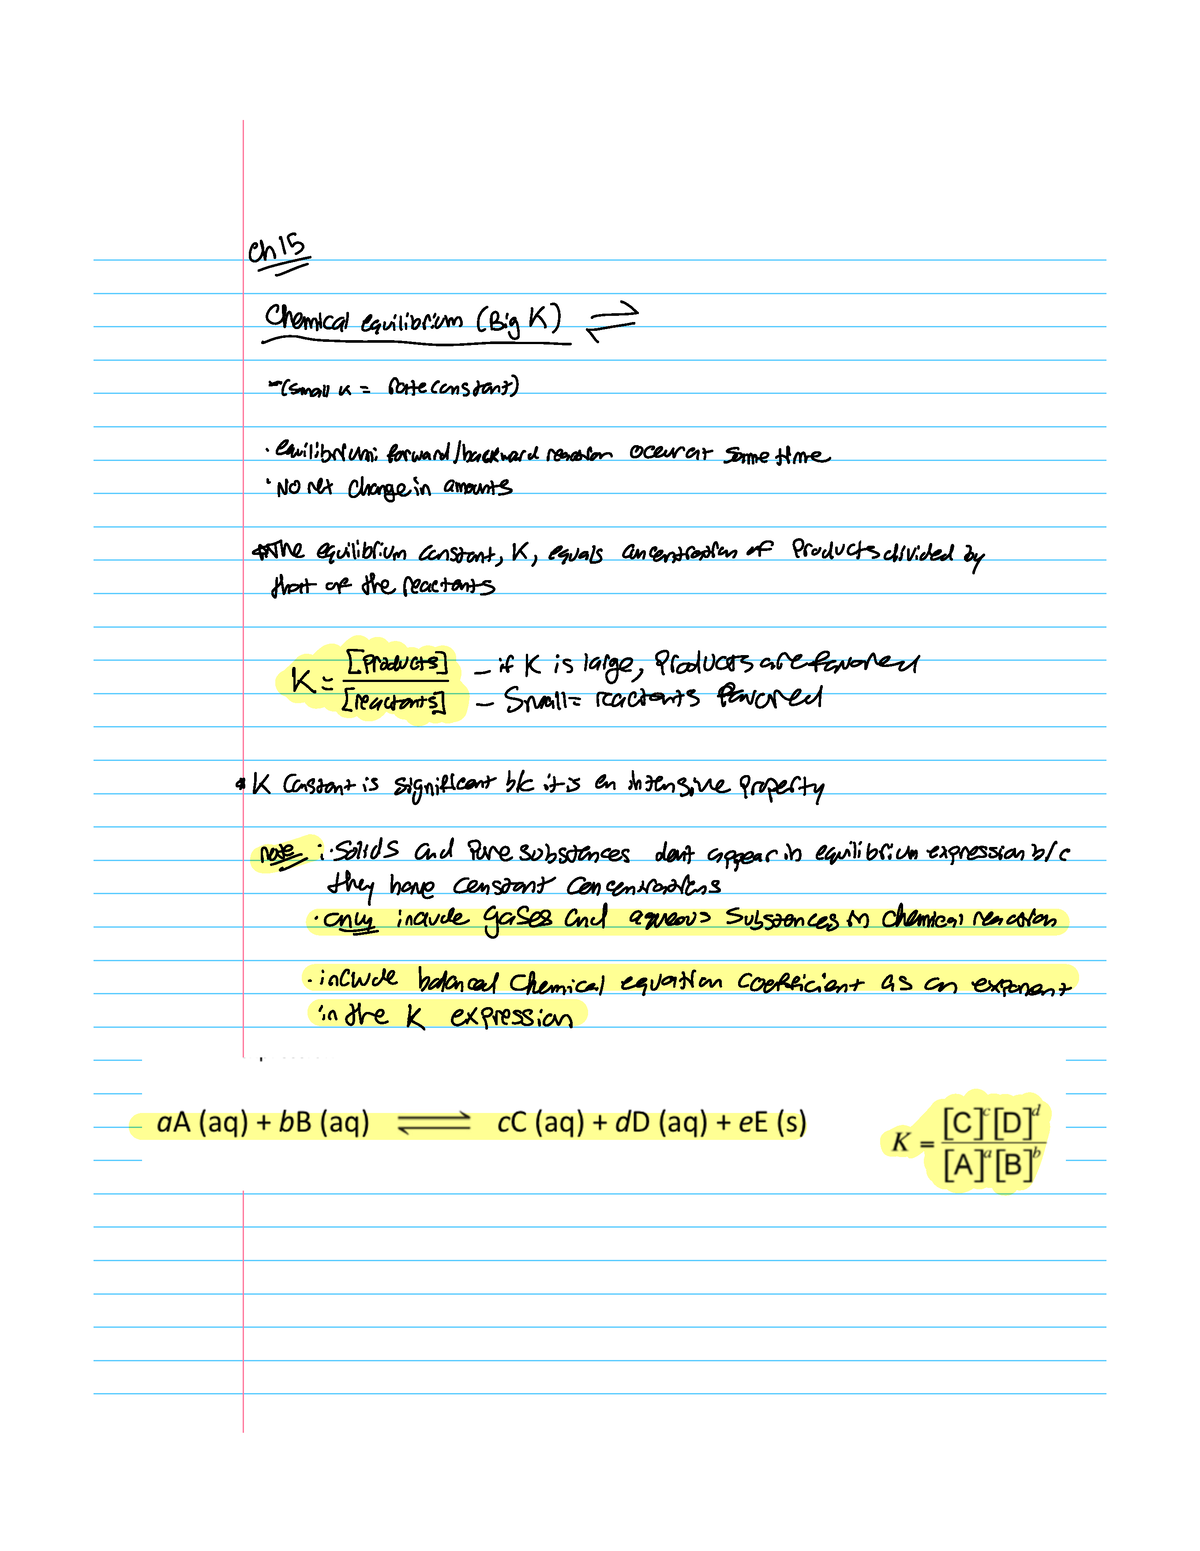 Ch 15
Chemical equilibrium (Big K) ⇌
-(small k = rate constant)
· equilibrium: forward/backward reaction occur at same time
· No net change in amounts
*The equilibrium constant, K, equals concentration of products divided by
that of the reactants
K = [products] / [reactants] - if K is large, products are favored
- Small = reactants favored
* K constant is significant b/c it is an intensive property
note: · Solids and Pure substances dont appear in equilibrium expression b/c
they have constant concentrations
· only include gases and aqueous substances in chemical reaction
· include balanced chemical equation coefficient as an exponent
in the K expression
aA (aq) + bB (aq) ⇌ cC (aq) + dD (aq) + eE (s) K = [C]^c [D]^d / [A]^a [B]^b